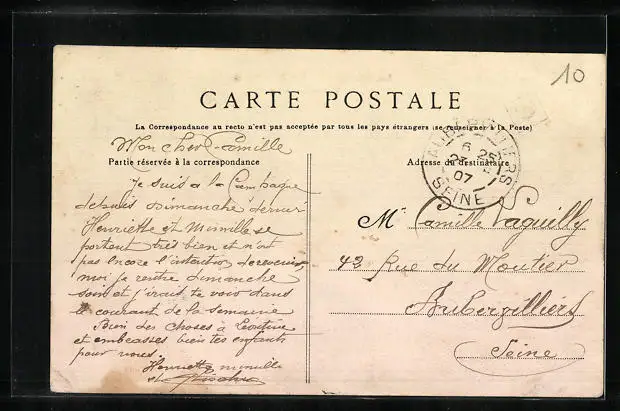 10
CARTE POSTALE
La Correspondance au recto n'est pas acceptée par tous les pays étrangers (se renseigner à la Poste)
Mon cher Camille
Partie réservée à la correspondance
Adresse du destinataire
AUBERVILLIERS
6 25
07
SEINE
Je suis a la Campagne
depuis dimanche dernier
Henriette et Mimille se
portent très bien et n'ont
pas encore l'intention de revenir,
moi je rentre dimanche
soir et j'irais te voir dans
le courant de la semaine
Bien des choses à Léontine
et embrasses bien tes enfants
pour nous.
Henriette mimille
et
Mr Camille Laguilly
42 Rue du Moutier
Aubervilliers
Seine